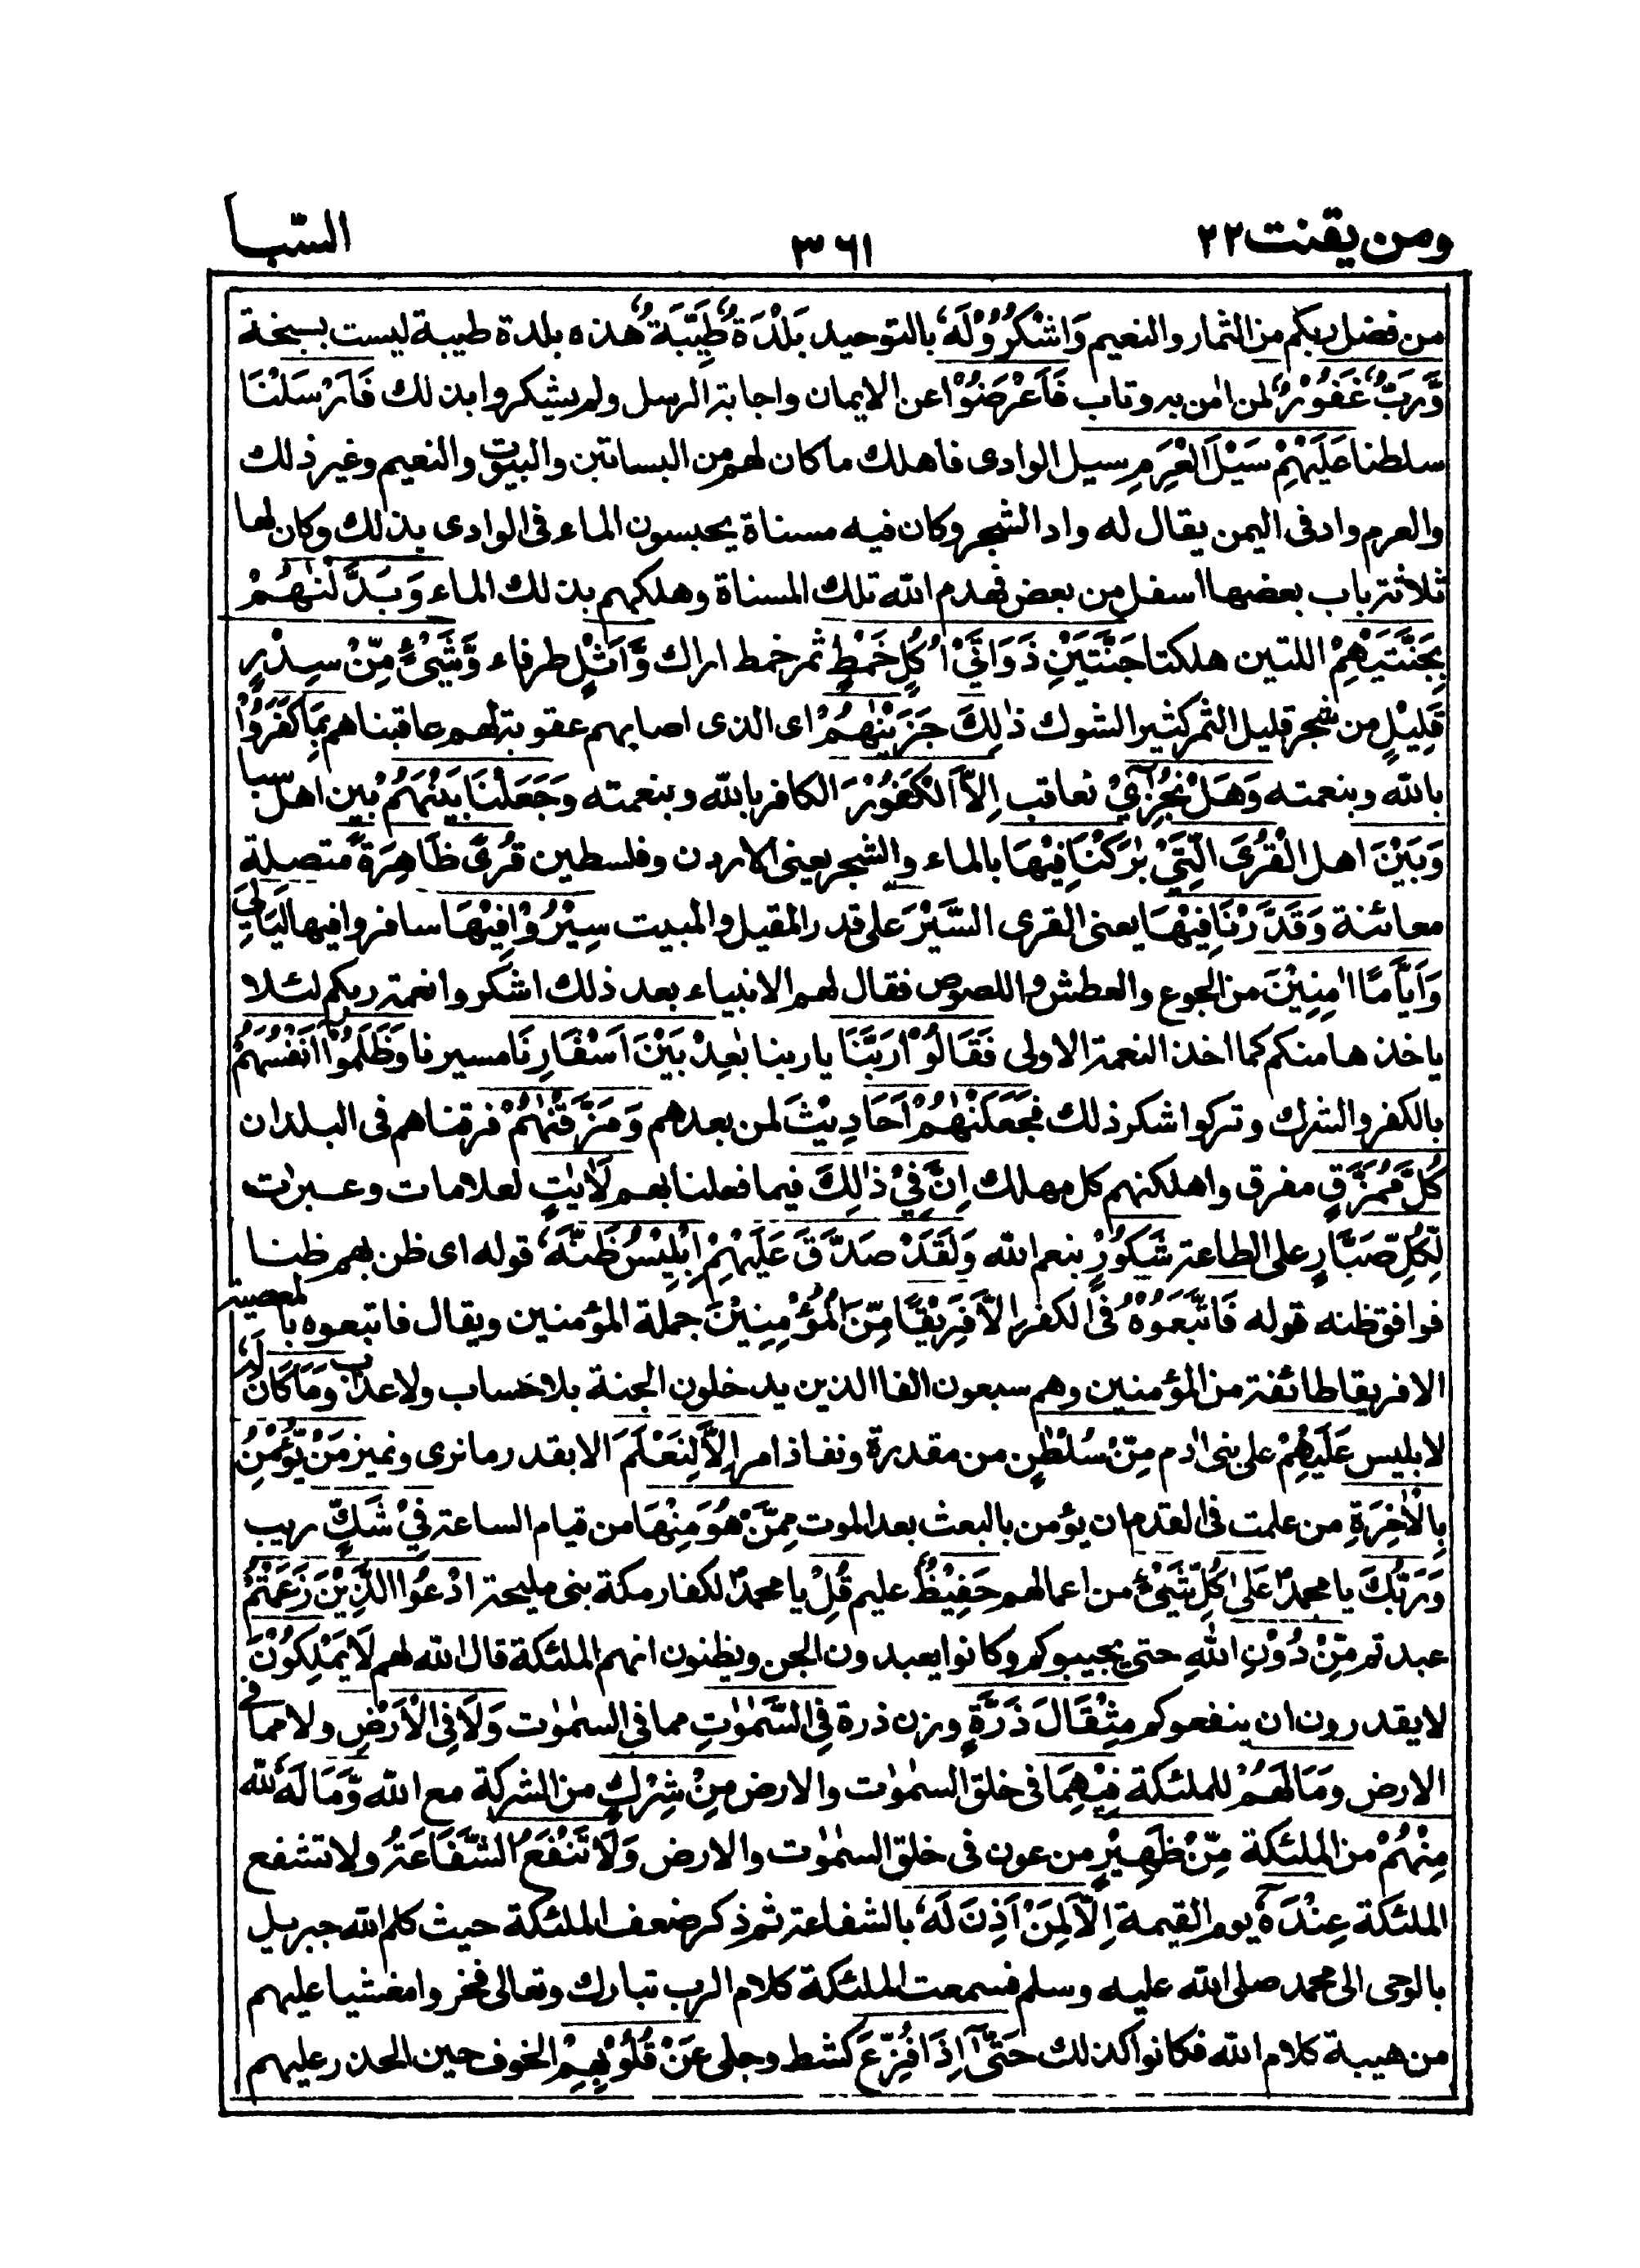 ومن يقنت ٢٢
٣٦١
السّبا
من فضل ربكم من الثمار والنعيم وَاشْكُرُوْا لَهٗ بالتوحيد بَلْدَةٌ طَيِّبَةٌ هذه بلدة طيبة ليست بسبخة
وَّرَبٌّ غَفُوْرٌ لمن اٰمن به وتاب فَاَعْرَضُوْا عن الايمان واجابة الرسل ولم يشكروا بذلك فَاَرْسَلْنَا
سلطنا عَلَيْهِمْ سَيْلَ الْعَرِمِ سيل الوادى فاهلك ما كان لهم من البساتين والبيوت والنعيم وغير ذلك
والعرم واد فى اليمن يقال له واد الشجر وكان فيه مسناة يحبسون الماء فى الوادى بذلك وكان لها
ثلاثة ابواب بعضها اسفل من بعض فهدم الله تلك المسناة وهلكهم بذلك الماء وَبَدَّلْنٰهُمْ
بِجَنَّتَيْهِمْ اللتين هلكتا جَنَّتَيْنِ ذَوَاتَيْ اُكُلٍ خَمْطٍ ثمر خمط اراك وَّاَثْلٍ طرفاء وَّشَيْءٍ مِّنْ سِدْرٍ
قَلِيْلٍ من شجر قليل الثمر كثير الشوك ذٰلِكَ جَزَيْنٰهُمْ اى الذى اصابهم عقوبة لهم عاقبناهم بِمَا كَفَرُوْا
بالله وبنعمته وَهَلْ نُجٰزِيْ نعاقب اِلَّا الْكَفُوْرَ الكافر بالله وبنعمته وَجَعَلْنَا بَيْنَهُمْ بين اهل سبا
وَبَيْنَ اهل الْقُرَى الَّتِيْ بٰرَكْنَا فِيْهَا بالماء والشجر يعنى الاردن وفلسطين قُرًى ظَاهِرَةً متصلة
معائنة وَقَدَّرْنَا فِيْهَا يعنى القرى السَّيْرَ على قدر المقيل والمبيت سِيْرُوْا فِيْهَا سافروا فيها لَيَالِيَ
وَاَيَّامًا اٰمِنِيْنَ من الجوع والعطش واللصوص فقال لهم الانبياء بعد ذلك اشكروا نعمة ربكم لئلا
ياخذها منكم كما اخذ النعمة الاولى فَقَالُوْا رَبَّنَا يا ربنا بٰعِدْ بَيْنَ اَسْفَارِنَا مسيرنا وَظَلَمُوْا اَنْفُسَهُمْ
بالكفر والشرك وتركوا شكر ذلك فَجَعَلْنٰهُمْ اَحَادِيْثَ لمن بعدهم وَمَزَّقْنٰهُمْ فرقناهم فى البلدان
كُلَّ مُمَزَّقٍ مفرق واهلكنهم كل مهلك اِنَّ فِيْ ذٰلِكَ فيما فعلنا بهم لَاٰيٰتٍ لعلامات وعبرات
لِّكُلِّ صَبَّارٍ على الطاعة شَكُوْرٍ بنعم الله وَلَقَدْ صَدَّقَ عَلَيْهِمْ اِبْلِيْسُ ظَنَّهٗ قوله اى ظن بهم ظنا
فوافق ظنه قوله فَاتَّبَعُوْهُ فى الكفر اِلَّا فَرِيْقًا مِّنَ الْمُؤْمِنِيْنَ جملة المؤمنين ويقال فاتبعوه بالمعصية
الا فريقا طائفة من المؤمنين وهم سبعون الفا الذين يدخلون الجنة بلا حساب ولا عذاب وَمَا كَانَ لَهٗ
لابليس عَلَيْهِمْ على بنى اٰدم مِّنْ سُلْطٰنٍ من مقدرة ونفاذ امر اِلَّا لِنَعْلَمَ الا بقدر ما نرى ونميز مَنْ يُّؤْمِنُ
بِالْاٰخِرَةِ من علمت فى القدم ان يؤمن بالبعث بعد الموت مِمَّنْ هُوَ مِنْهَا من قيام الساعة فِيْ شَكٍّ ريب
وَرَبُّكَ يا محمدؐ عَلٰى كُلِّ شَيْءٍ من اعمالهم حَفِيْظٌ عليم قُلِ يا محمدؐ لكفار مكة بنى مليحة ادْعُوا الَّذِيْنَ زَعَمْتُمْ
عبدتم مِّنْ دُوْنِ اللّٰهِ حتى يجيبوكم وكانوا يعبدون الجن ويظنون انهم الملئكة قال الله لهم لَا يَمْلِكُوْنَ
لا يقدرون ان ينفعوكم مِثْقَالَ ذَرَّةٍ وزن ذرة فِي السَّمٰوٰتِ مما فى السمٰوٰت وَلَا فِي الْاَرْضِ ولا مما فى
الارض وَمَا لَهُمْ للملئكة فِيْهِمَا فى خلق السمٰوٰت والارض مِنْ شِرْكٍ من الشركة مع الله وَّمَا لَهٗ لله
مِنْهُمْ من الملئكة مِّنْ ظَهِيْرٍ من عون فى خلق السمٰوٰت والارض وَلَا تَنْفَعُ الشَّفَاعَةُ ولا تشفع
الملئكة عِنْدَهٗ يوم القيمة اِلَّا لِمَنْ اَذِنَ لَهٗ بالشفاعة ثم ذكر ضعف الملئكة حيث كلم الله جبريل
بالوحى الى محمد صلى الله عليه وسلم فسمعت الملئكة كلام الرب تبارك وتعالى فخروا مغشيا عليهم
من هيبة كلام الله فكانوا كذلك حَتّٰى اِذَا فُزِّعَ كشط وجلى عَنْ قُلُوْبِهِمْ الخوف حين انحدر عليهم